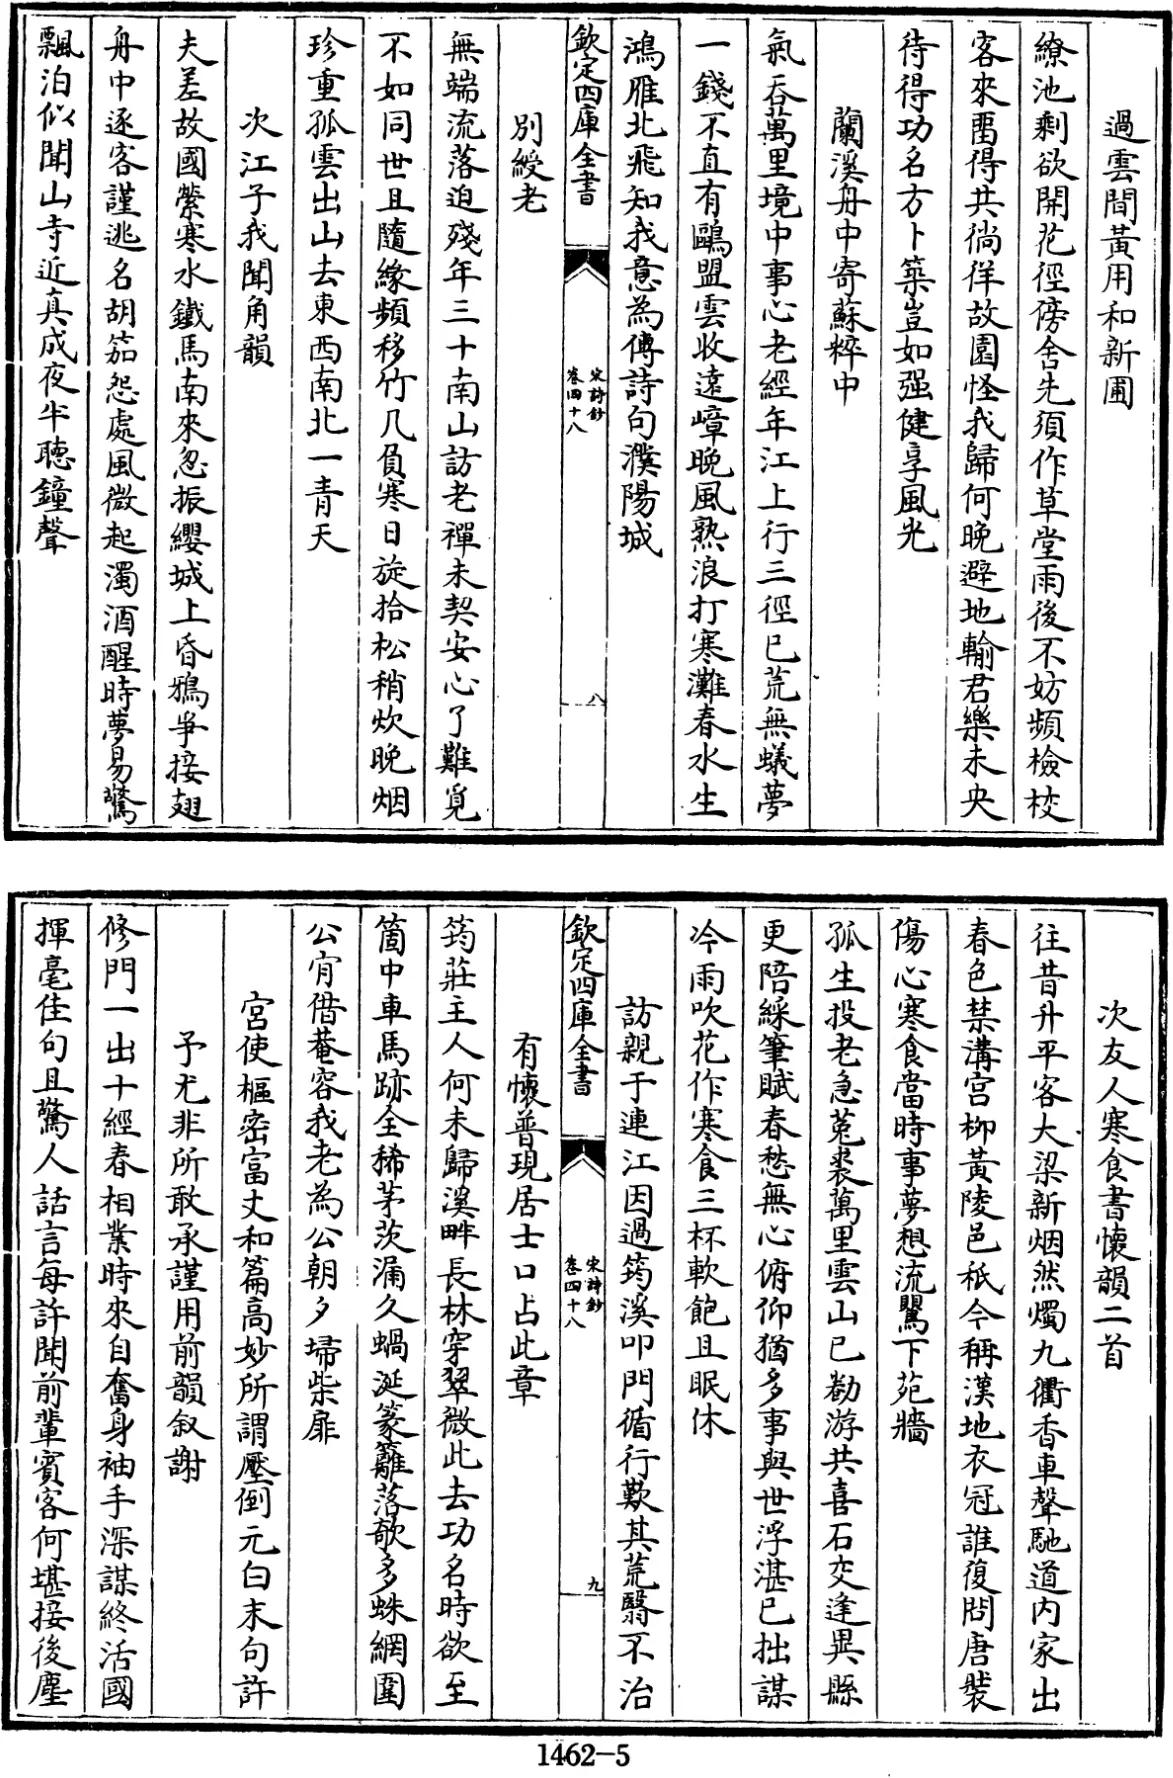 過雲間黃用和新圃
繚池剩欲開花徑傍舍先須作草堂雨後不妨頻檢校
客來畱得共徜徉故園怪我歸何晚避地輸君樂未央
待得功名方卜築豈如强健享風光
蘭溪舟中寄蘇粹中
氣吞萬里境中事心老經年江上行三徑已荒無蟻夢
一錢不直有鷗盟雲收遠嶂晚風熟浪打寒灘春水生
鴻雁北飛知我意為傳詩句濮陽城
欽定四庫全書
宋詩鈔
卷四十八
八
別綬老
無端流落迫殘年三十南山訪老禪未契安心了難覓
不如同世且隨緣頻移竹几負寒日旋拾松梢炊晚烟
珍重孤雲出山去東西南北一青天
次江子我聞角韻
夫差故國縈寒水鐵馬南來忽振纓城上昏鴉爭接翅
舟中逐客謹逃名胡笳怨處風微起濁酒醒時夢易驚
飄泊似聞山寺近真成夜半聽鐘聲
次友人寒食書懷韻二首
往昔升平客大梁新烟然燭九衢香車聲馳道内家出
春色禁溝宫柳黃陵邑祇今稱漢地衣冠誰復問唐裝
傷心寒食當時事夢想流鶯下苑牆
孤生投老急菟裘萬里雲山已勌游共喜石交逢異縣
更陪綵筆賦春愁無心俯仰猶多事與世浮湛已拙謀
冷雨吹花作寒食三杯軟飽且眠休
訪親于連江因過筠溪叩門循行歎其荒翳不治
欽定四庫全書
宋詩鈔
卷四十八
九
有懷普現居士口占此章
筠莊主人何未歸溪畔長林穿翠微此去功名時欲至
箇中車馬跡全稀茅茨漏久蝸涎篆籬落欹多蛛網圍
公肯借菴容我老為公朝夕埽柴扉
宮使樞密富丈和篇高妙所謂壓倒元白末句許
予尤非所敢承謹用前韻叙謝
修門一出十經春相業時來自奮身袖手深謀終活國
揮毫佳句且驚人話言每許聞前輩賓客何堪接後塵
1462-5